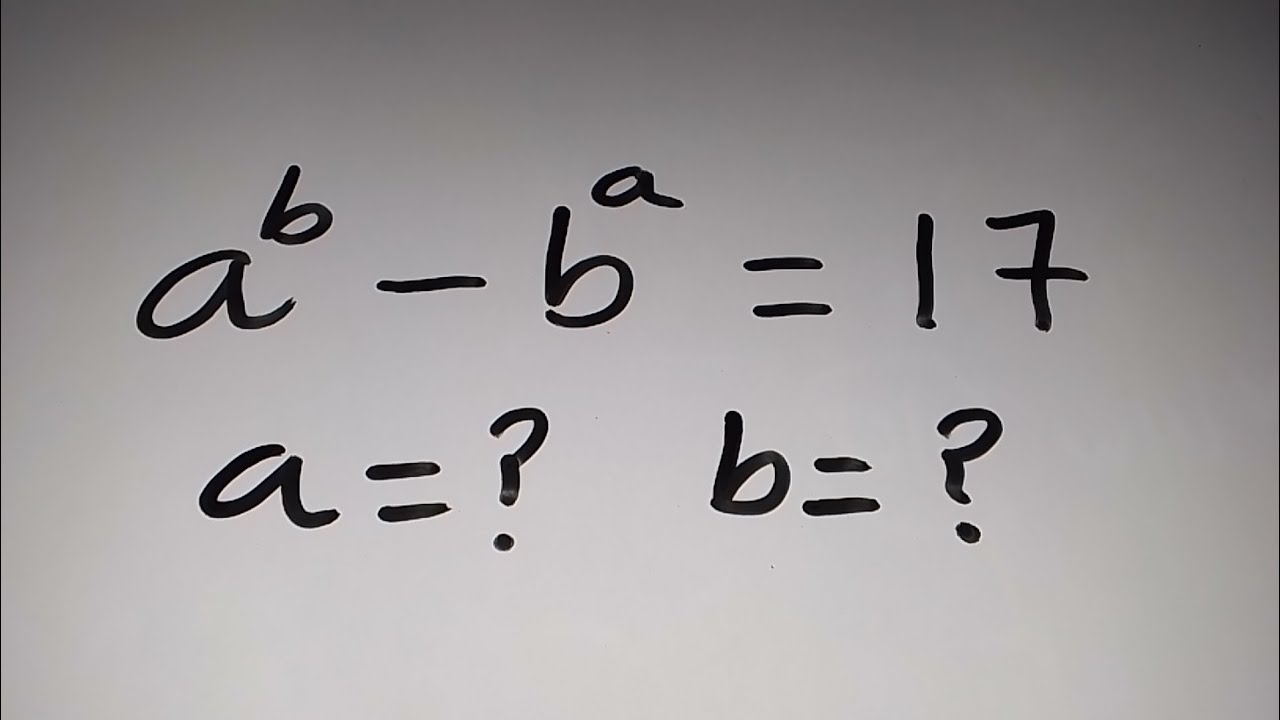 a^b - b^a = 17
a = ? b = ?